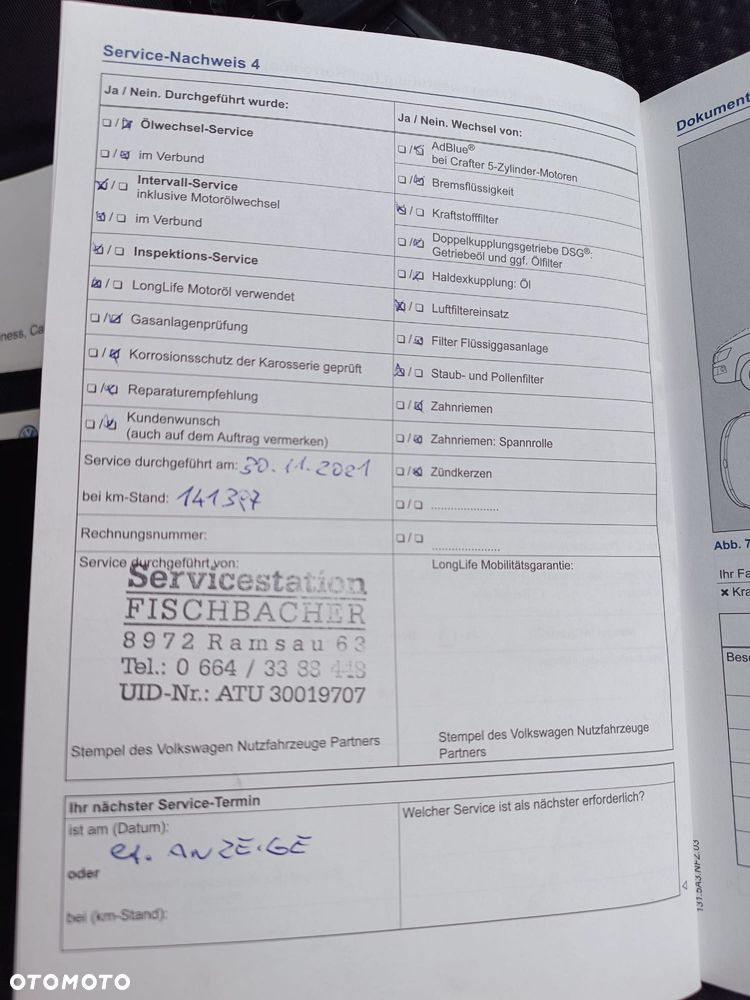 Service-Nachweis 4
Ja / Nein. Durchgeführt wurde:
Ölwechsel-Service
im Verbund
Intervall-Service
inklusive Motorölwechsel
im Verbund
Inspektions-Service
LongLife Motoröl verwendet
Gasanlagenprüfung
Korrosionsschutz der Karosserie geprüft
Reparaturempfehlung
Kundenwunsch
(auch auf dem Auftrag vermerken)
Service durchgeführt am: 30.11.2021
bei km-Stand: 141397
Rechnungsnummer:
Service durchgeführt von:
Servicestation
FISCHBACHER
8972 Ramsau 63
Tel.: 0 664 / 33 83 448
UID-Nr.: ATU 30019707
Stempel des Volkswagen Nutzfahrzeuge Partners
Ja / Nein. Wechsel von:
AdBlue®
bei Crafter 5-Zylinder-Motoren
Bremsflüssigkeit
Kraftstofffilter
Doppelkupplungsgetriebe DSG®:
Getriebeöl und ggf. Ölfilter
Haldexkupplung: Öl
Luftfiltereinsatz
Filter Flüssiggasanlage
Staub- und Pollenfilter
Zahnriemen
Zahnriemen: Spannrolle
Zündkerzen
.....................
.....................
LongLife Mobilitätsgarantie:
Stempel des Volkswagen Nutzfahrzeuge
Partners
Ihr nächster Service-Termin
ist am (Datum):
ANZEIGE
oder
bei (km-Stand):
Welcher Service ist als nächster erforderlich?
4
131.5A3.NFZ.03
Dokument
Abb. 7
Ihr Fa
× Kra
Bes
ness, Ca
OTOMOTO